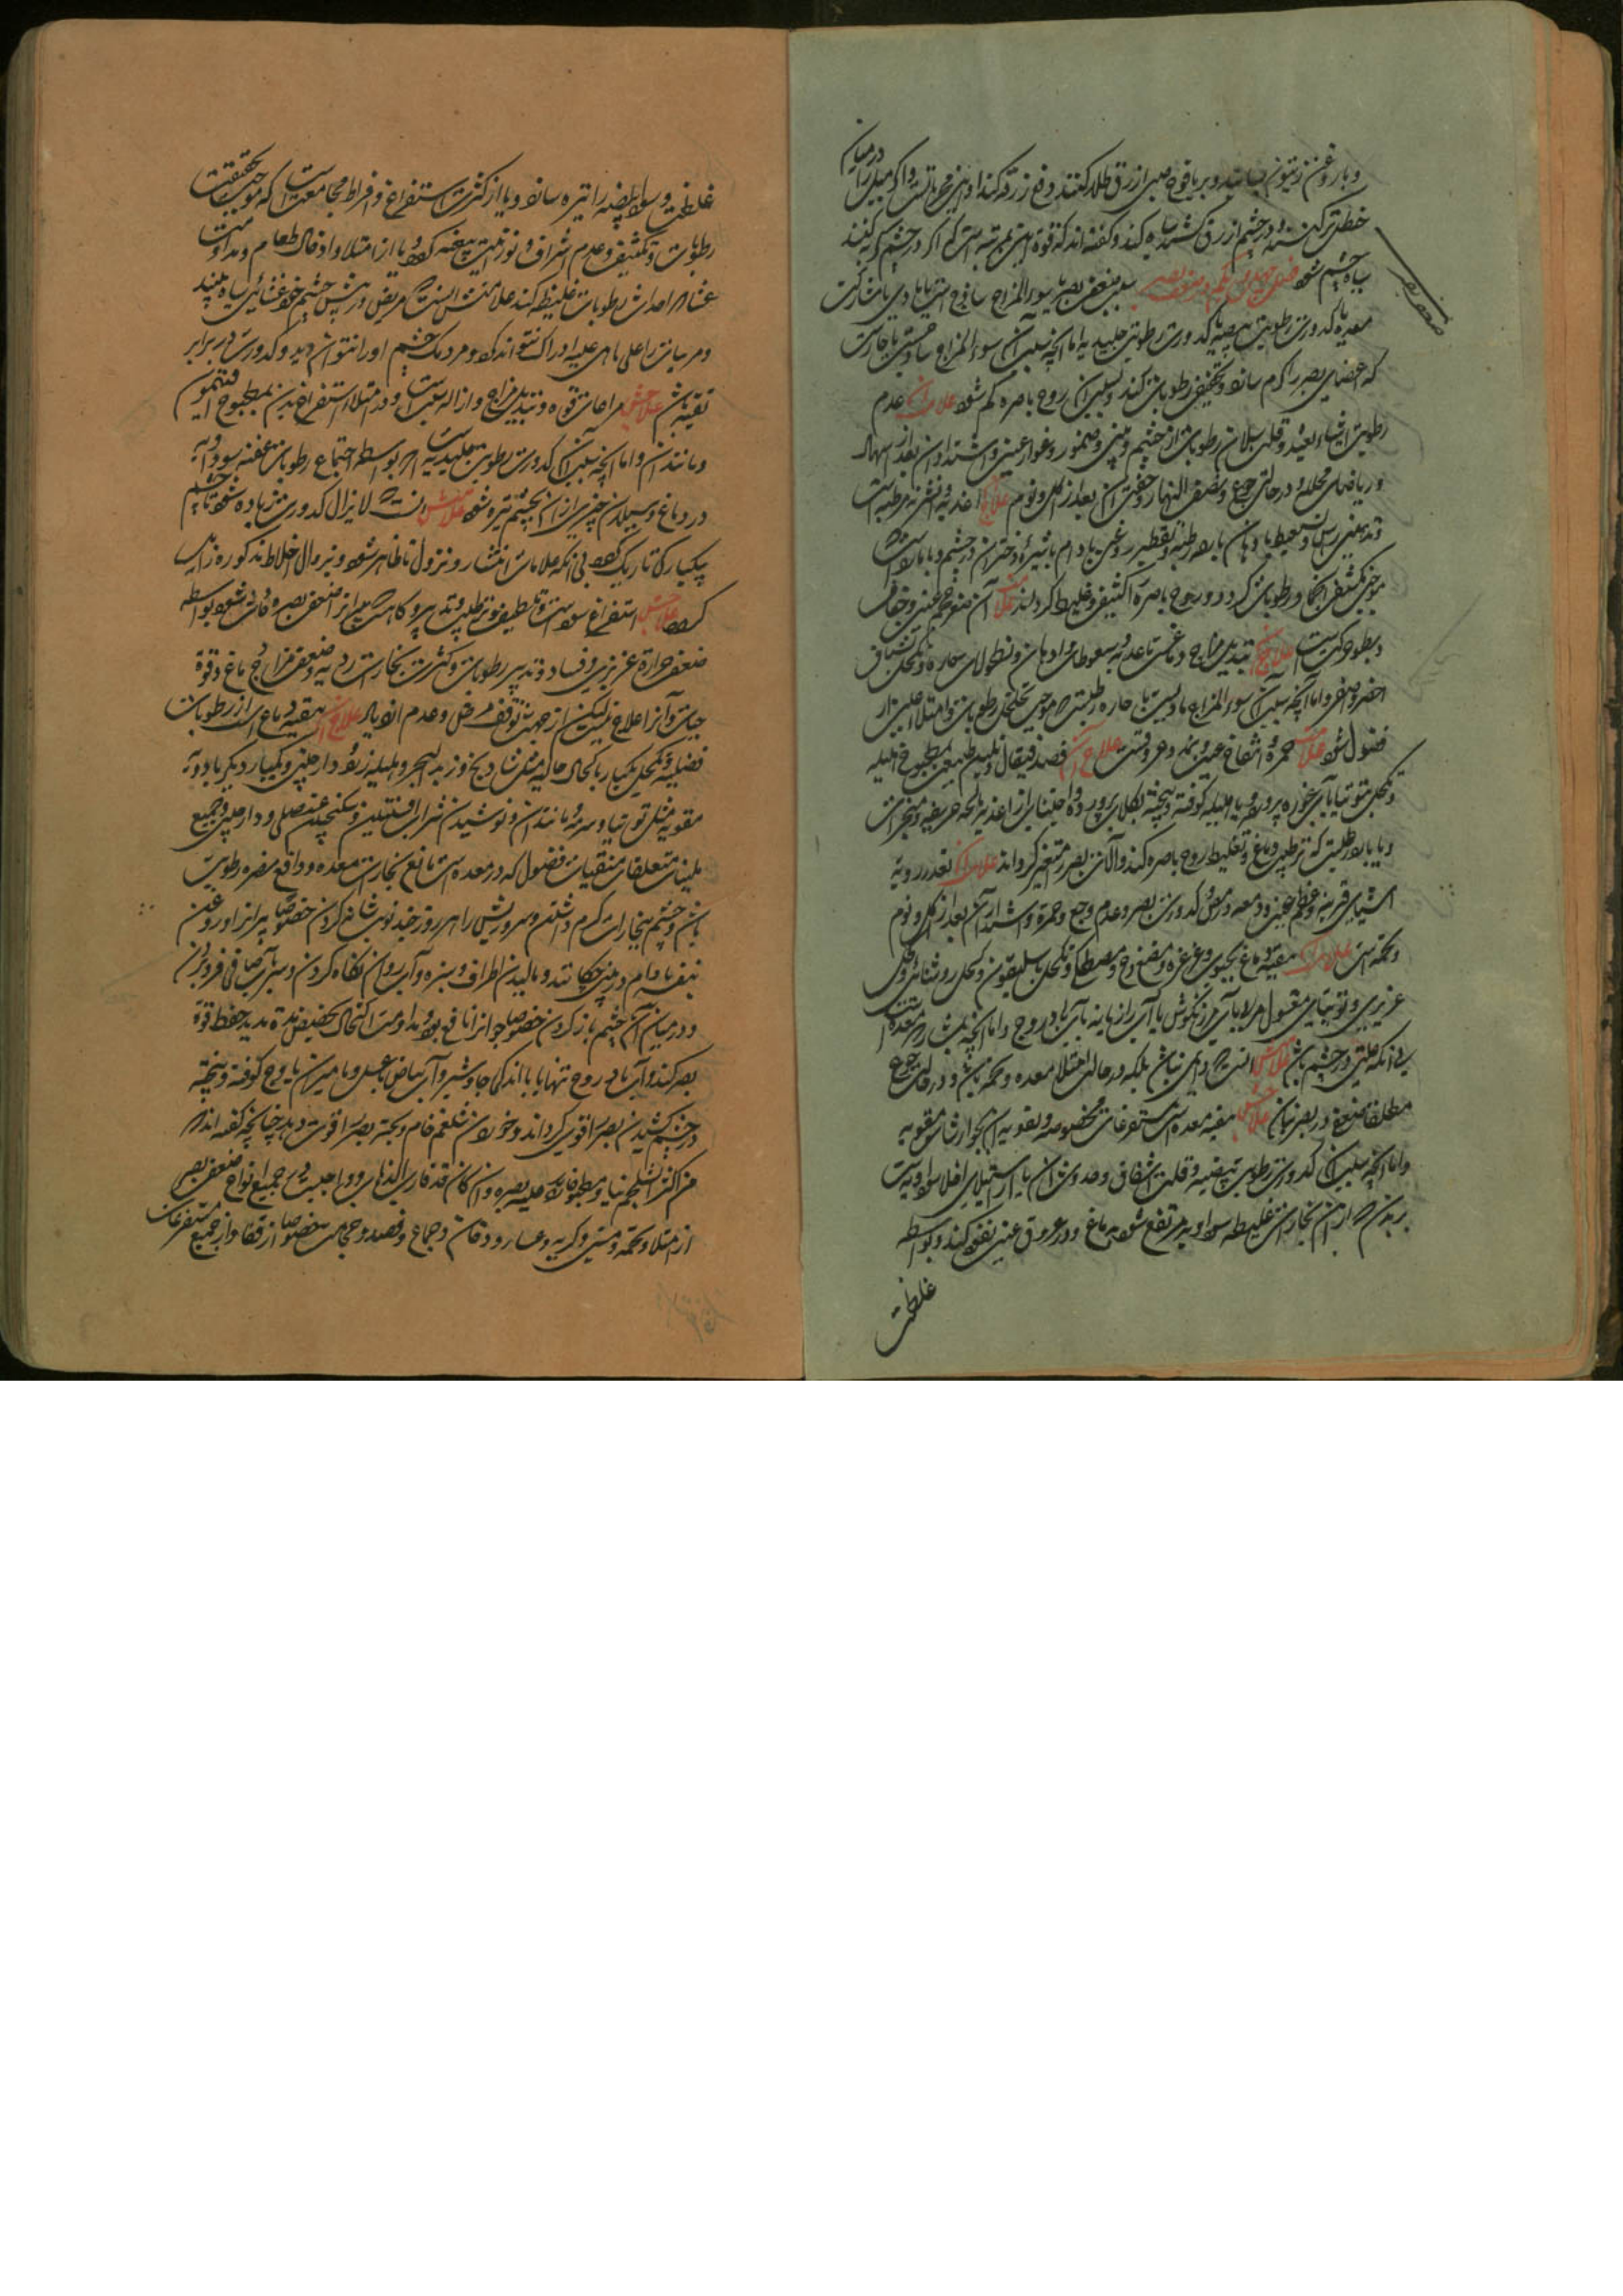 و با روغن زیتون بسایند و بر یافوخ صبی ازرق طلا کنند رفع زرقه کند و این مجرباتست و اگر میل را در میان
حنظل تر کنند و در چشم ازرق کشند سیاه کند و گفته اند که قوة این بمرتبه است که اگر در چشم گربه کنند
سیاه چشم شود فصل چهل و یکم در ضعف بصر سبب ضعف بصر یا سوء المزاج ساذج است یا مادی یا بمشارکت
ضعف بصر
معده یا کدورت رطوبت بیضیه یا کدورت رطوبت جلیدیه اما آنچه سبب آن سوء المزاج سادجست یا حارست
که اعضای بصر را گرم سازد و تخفیف رطوبات کند و بسبب آن روح باصره کم شود علامت آن عدم
رطوبت اشیاء بعید و قلت سیلان رطوبات از چشم و بینی و ضمور و غور عینین و اشتداد آن بعد از اسهال
و ریاضات محلله و در حالت جوع و نصف النهار و خفت آن بعد از اکل و نوم علاج اغذیه و اشربه مرطبه است
و تدهین راس و سعوط بادهان بارده رطبه و تقطیر روغن بادام با شیر دختران در چشم و یا باردست
موجب تکثیف اجزا و رطوبات گردد و روح باصره را کثیف و غلیظ گرداند علامت آن صغر حجم عینین و جفاف
و بطو حرکتست علاج تبدیل مزاج دماغ با غذیه و سعوطات و ادهان و نطولات حاره و تکحل بشیاف
اخضر و اصفر و اما آنچه سبب آن سوء المزاج مادیست یا حاره رطبست که موجب تخلخل رطوبات و امتلاء عین از
فضول شود علامت حمره و انتفاخ عینین و تمدد عروقست علاج آن فصد قیفال و تلیین طبیعت بمطبوخ هلیله
و تکحل بتوتیا بآب غوره پرورده و یا هلیله کوفته و بیخته بگلاب پرورده و اجتناب از اغذیه مالحه حریفه و مبخرات
و یا بارد رطبست که ترطیب دماغ و تغلیظ روح باصره کند و آلات بصر را متغیر گرداند علامت آن تعذر رویة
اشیای قریبه و عظم عینین و دمعه و رمص و کدورت بصر و عدم وجع و حمره و اشتداد آن بعد از اکل و نوم
و تخمه است علاج آن تنقیه دماغ بحبوب و غرغره و مضوغ و مصطکی و تکحل بباسلیقون و کحل روشنائی و کحل
عزیزی و توتیای مغسول مربا بآب مرزنگوش یا آب رازیانه یا آب بادروج و اما آنچه بمشارکت معده است
بی آنکه علتی در چشم باشد علامتش آنست که دایمی نباشد بلکه در حالت امتلا معده و تخمه باشد و در حالت جوع
مطلقا ضعف در بصر نباشد علاجش تنقیه معده است بمستفرغات مخصوصه و تقویه آن بجوارشات مقویه
و اما آنچه سبب آن کدورت رطوبت بیضیه و قلت اشفاف و حدوث آن یا از استیلای اخلاط سوداویست
بر بدن که از آن بخارات غلیظه سوداویه مرتفع شود بدماغ و در عروق عینین نفوذ کند و بواسطه
غلظت
غلظت و سواد بیضیه را تیره سازد و یا از کثرت استفراغ و افراط مجامعت است که موجب تحقیقات
رطوبات و تکثیف و عدم اشراف و نوزانیت بیضیه گردد و یا از امتلا و ادخال طعام و مداومت
عشا که احداث رطوبات غلیظه کند علامتش آنست که مریض در پیش چشم خود غشائی سیاه بیند
و مرئیات را علی ما هی علیه ادراک نتواند کرد و مردمک چشم او را نتوان دید و کدورت در برابر
ثقبه باشد علاجش مراعات قوة و تبدیل مزاج و ازاله سبب است و در امتلا استفراغ بدن بمطبوخ افتیمون
و مانند آن و اما آنچه سبب آن کدورت رطوبت جلیدیه است که بواسطه اجتماع رطوبات عفنه سوداویه
در دماغ و سیلان چیزی از آن بچشم تیره شود علامتش آنست که لا یزال کدورت زیاده شود تا چشم
بیکبارگی تاریک گردد بی آنکه علامات انتشار و نزول ما ظاهر شود و بزوال اخلاط مذکوره زایل
گردد علاجش استفراغ سوداست و تلطیف و ترطیب تدبیر و گاهست که پیرانرا ضعف بصر و حادث شود بواسطه
ضعف حرارة غریزی و فساد تدبیر رطوبات و کثرت بخارات ردیه و ضعف مزاج دماغ و قوة
حیات و آنرا علاج نیست لیکن از جهت توقف مرض و عدم ازدیاد علاج آن تنقیه دماغ است از رطوبات
فضلیه و تکحل یکبار باکحال جالیه مثل شادنج و زبد البحر و هلیله زرد و دارچینی و یکبار دیگر بادویه
مقویه مثل توتیا و سرمه و مانند آن و نوشیدن شراب افسنتین و سکنجبین عنصلی و دارچینی و جمیع
ملینات متعلقات منقیات فضول که در معده است و مانع بخارات معده و دافع بصره رطوبت
باشد و چشم ببخارات گرم داشتن و سر و ریش را هر روز چند نوبت شانه کردن خصوصا پیرانرا و روغن
بنفشه بادام در بینی چکانند و مالیدن اطراف و سبزه و آب روان نگاه کردن و سر بآب صافی فرو بردن
و در میان آن چشم باز کردن خصوصا جوانرا نافع بود و مداومت اکتحال بحضض مدة مدید حفظ قوة
بصر کند و آب بادروج تنها یا با اندکی جاوشیر و آب پیاض با عسل و مامیران با وج کوفته و بیخته
در چشم کشیدن بصر را قوی گرداند و خوردن شلغم خام و پخته بصر را قوت دهد چنانچه گفته اند که
من اکثر الشلجم نیا و مطبوخا یرد علیه بصره و ان کان قد قارب الذهاب و واجبست در جمیع انواع ضعف بصر
از امتلا و تخمه و مستی و گریه و غبار و دخان و جماع و فصد و حجامت خصوصا از قفا و از جمیع مستفرغات